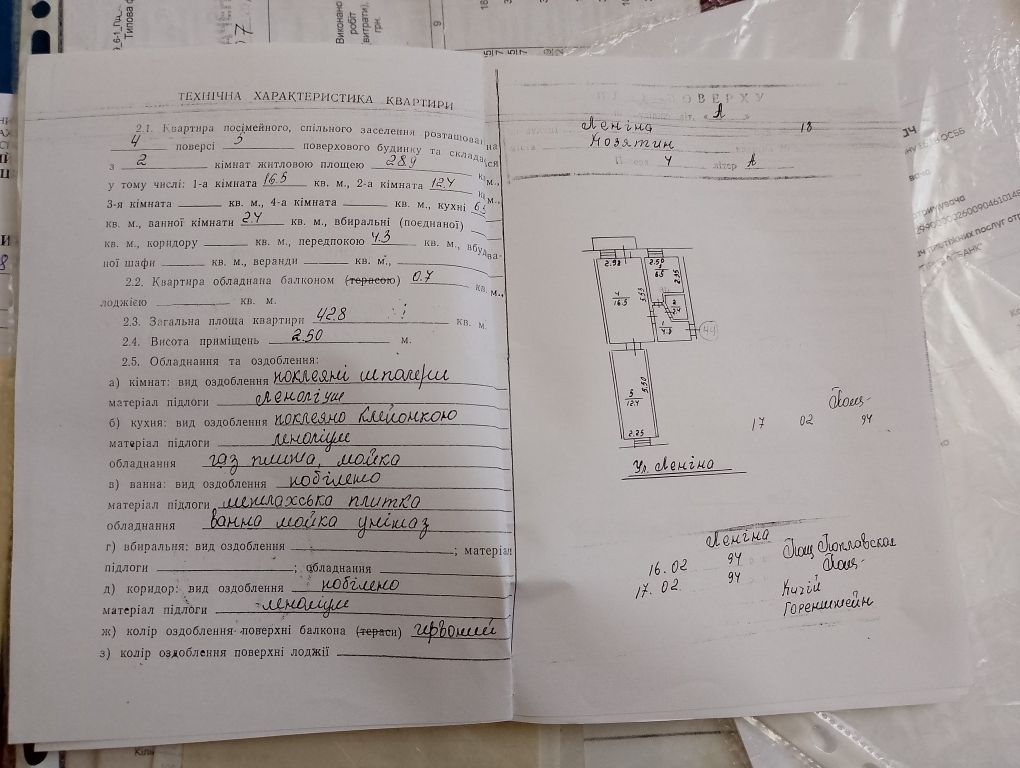 ТЕХНІЧНА ХАРАКТЕРИСТИКА КВАРТИРИ
2.1. Квартира посімейного, спільного заселення розташована на
4 поверсі 5 поверхового будинку та складається
з 2 кімнат житловою площею 28.9 кв. м.,
у тому числі: 1-а кімната 16.5 кв. м., 2-а кімната 12.4 кв. м.,
3-я кімната кв. м., 4-а кімната кв. м., кухні 6.5
кв. м., ванної кімнати 2.4 кв. м., вбиральні (поєднаної)
кв. м., коридору кв. м., передпокою 4.3 кв. м., вбудова-
ної шафи кв. м., веранди кв. м.,
2.2. Квартира обладнана балконом (терасою) 0.7 кв. м.,
лоджією кв. м.
2.3. Загальна площа квартири 42.8 кв. м.
2.4. Висота приміщень 2.50 м.
2.5. Обладнання та оздоблення:
а) кімнат: вид оздоблення поклеяні шпалери
матеріал підлоги леноліум
б) кухня: вид оздоблення поклеяно клейонкою
матеріал підлоги леноліум
обладнання газ плита, мойка
в) ванна: вид оздоблення побілено
матеріал підлоги метлахська плитка
обладнання ванна мойка унітаз
г) вбиральня: вид оздоблення ; матеріал
підлоги ; обладнання
д) коридор: вид оздоблення побілено
матеріал підлоги леноліум
ж) колір оздоблення поверхні балкона (тераси)
з) колір оздоблення поверхні лоджії
ПОВЕРХУ
літ. « А »
Леніна 18
Козятин
Поверх 4 літер А
2.98
2.50
6.5
2.35
4
16.5
5.53
2
2.4
1
4.3
44
5
12.4
5.50
2.25
Ул. Леніна
17 02 94
Леніна
16.02 94
17.02 94
Кучій
Горенштейн
Виконано
робіт
(витрати),
грн.
Типова ф
9
Кіль